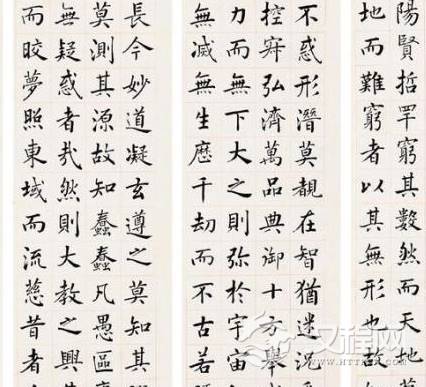 陽賢哲罕窮其數然而天地
地而難窮者以其無形也故
不惑形潛莫覩在智猶迷況乎
控寂弘濟萬品典御十方舉威
力而無下大之則彌於宇宙細
無滅無生歷千劫而不古若隱
長今妙道凝玄遵之莫知其
莫測其源故知蠢蠢凡愚區
無疑惑者哉然則大教之興基
而皎夢照東域而流慈昔者
汉程网
HTTPCN.COM